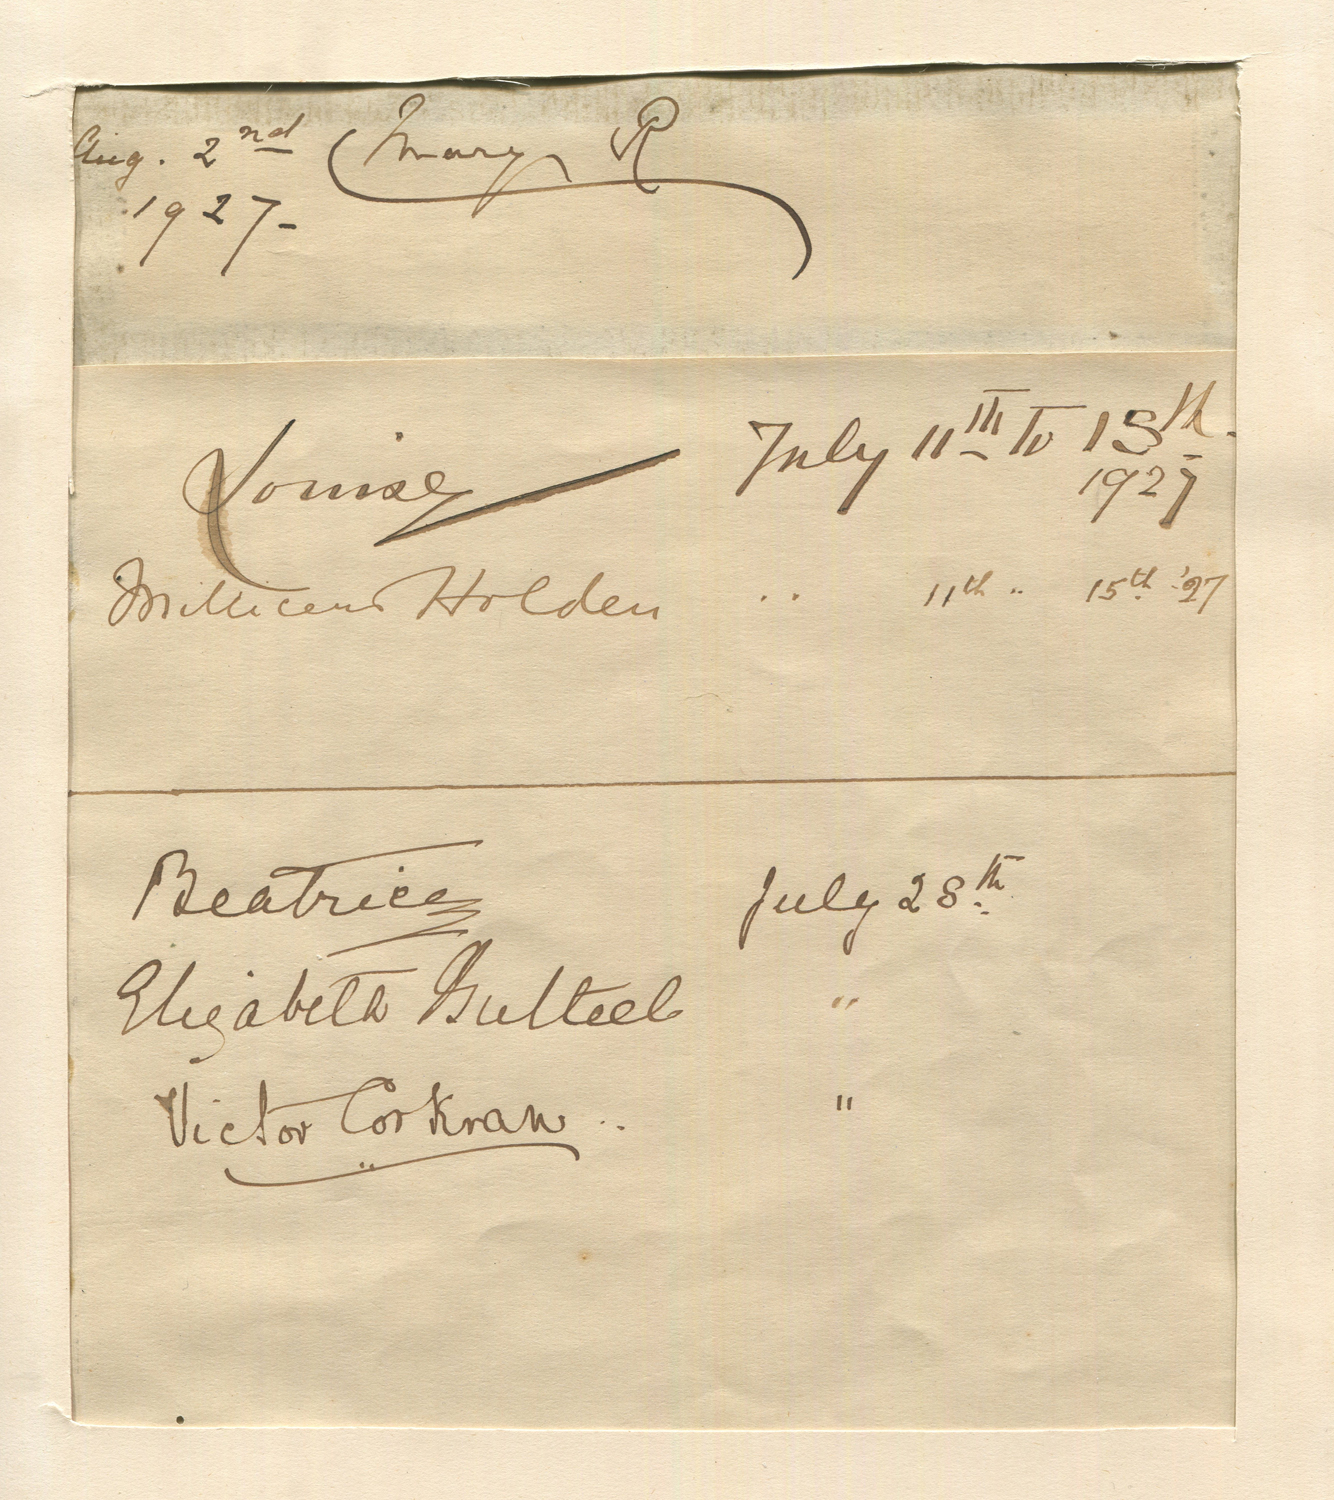 Aug. 2nd Mary R
1927-
Louise July 11th to 15th.
1927
Millicent Holden " 11th " 15th '27
Beatrice July 28th
Elizabeth Bulteel "
Victor Corkran "